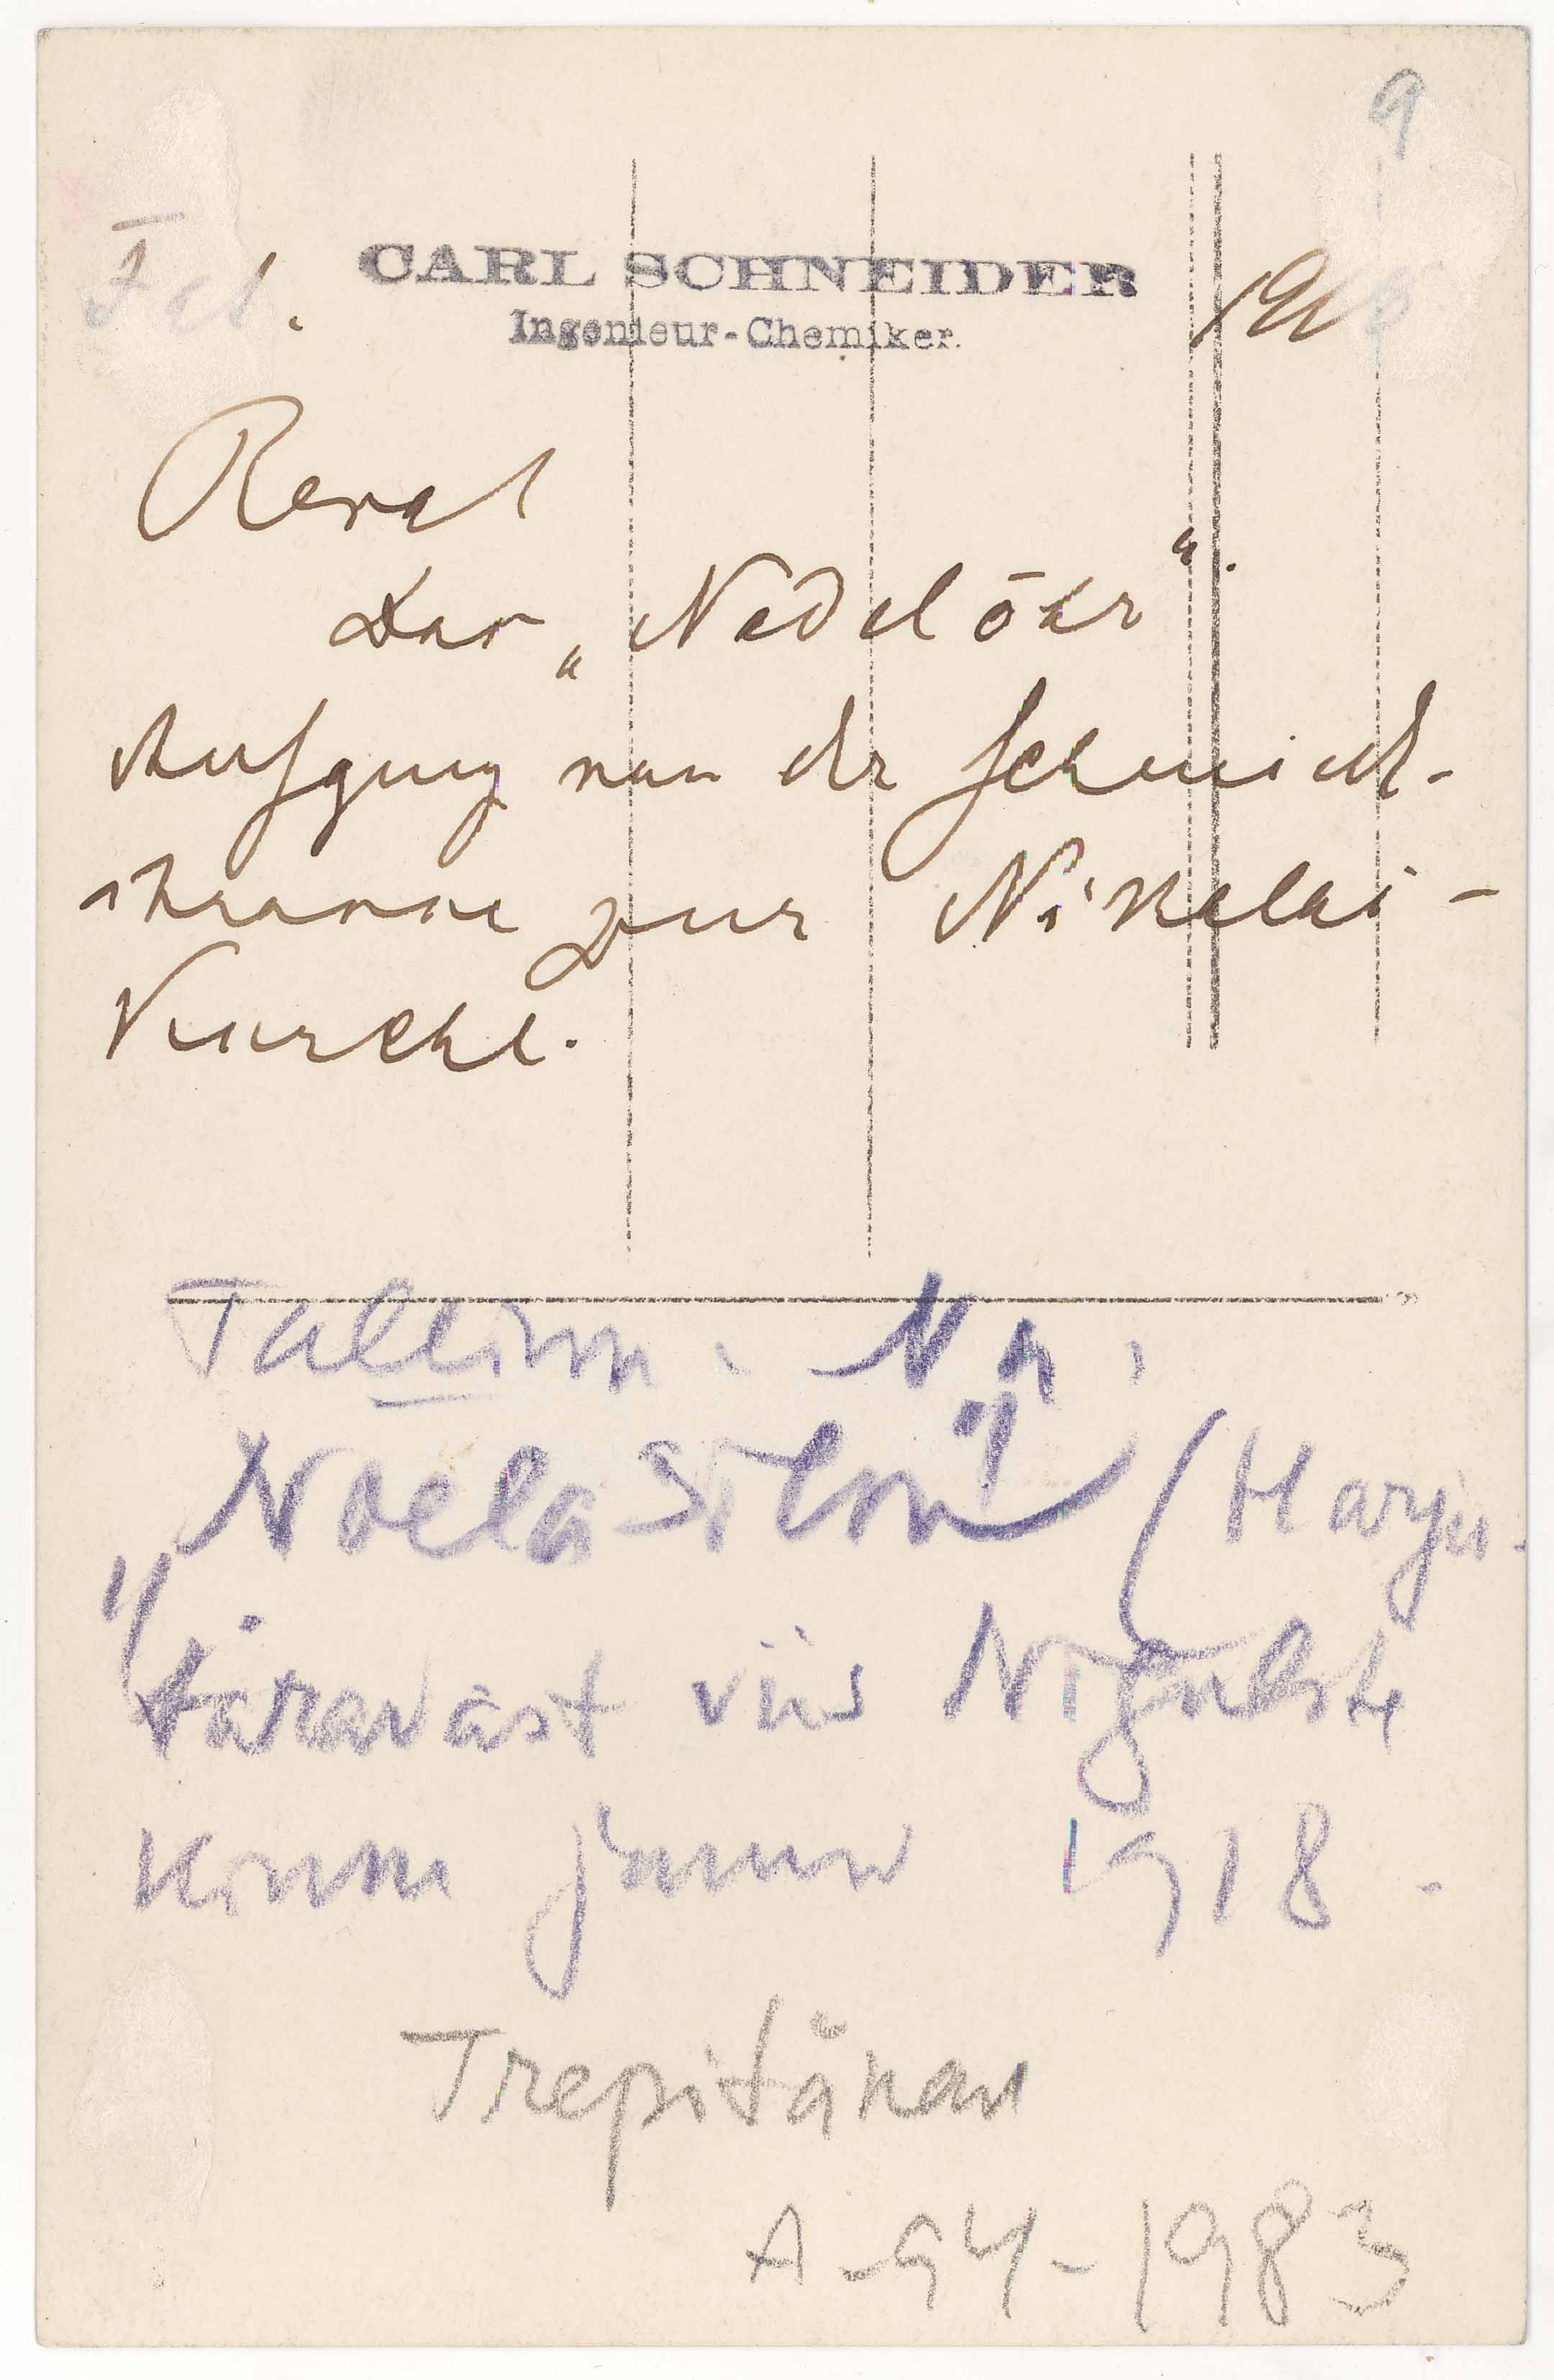 9
CARL SCHNEIDER
Ingenieur-Chemiker.
Reval
Das „Nadelöhr“.
Aufgang von der Schmied-
strasse zur Nikolai-
Kirche.
Tallinn.
"Nõela silm" (Harju
väravast viis Niguliste
kinni jaanuar 1918.
Trepitänav
A-94-1983